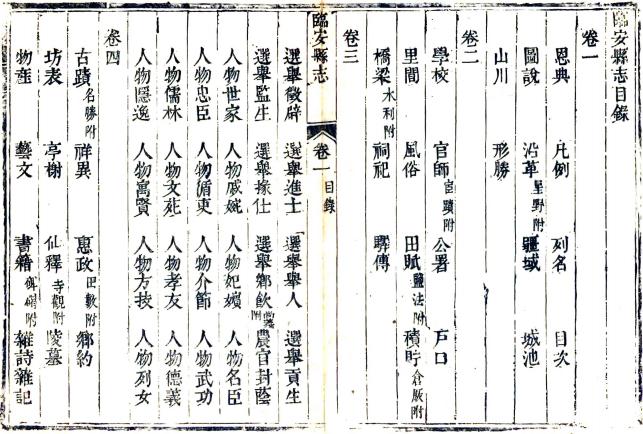 臨安縣志目錄
卷一
恩典 凡例 列名 目次
圖說 沿革星野附 疆域 城池
山川 形勝
卷二
學校 官師宦蹟附 公署 戶口
里閭 風俗 田賦鹽法附 積貯倉廒附
橋梁水利附 祠祀 驛傳
卷三
臨安縣志 卷一 目錄
選舉徵辟 選舉進士 選舉舉人 選舉貢生
選舉監生 選舉掾仕 選舉鄉飲附 農官封蔭
人物世家 人物戚畹 人物妃嬪 人物名臣
人物忠臣 人物循吏 人物介節 人物武功
人物儒林 人物文苑 人物孝友 人物德義
人物隱逸 人物寓賢 人物方技 人物列女
卷四
古蹟名勝附 祥異 惠政田數附 鄉約
坊表 亭榭 仙釋寺觀附 陵墓
物產 藝文 書籍碑碣附 雜詩雜記